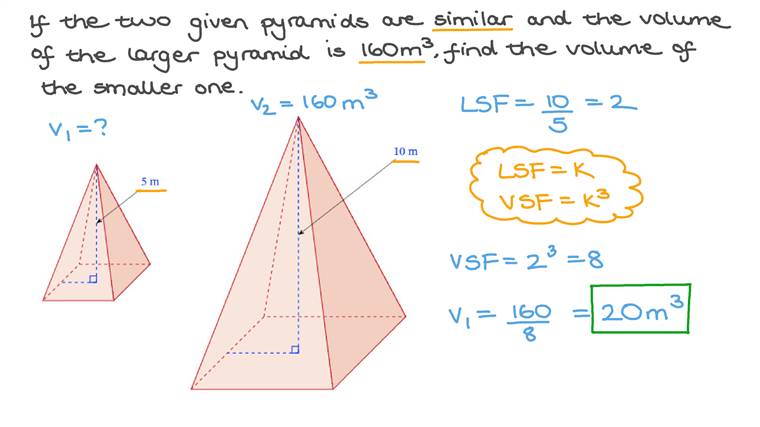 If the two given pyramids are similar and the volume
of the larger pyramid is 160m³, find the volume of
the smaller one.
V₁ = ?
V₂ = 160m³
5 m
10 m
LSF = 10/5 = 2
LSF = K
VSF = K³
VSF = 2³ = 8
V₁ = 160/8 = 20m³